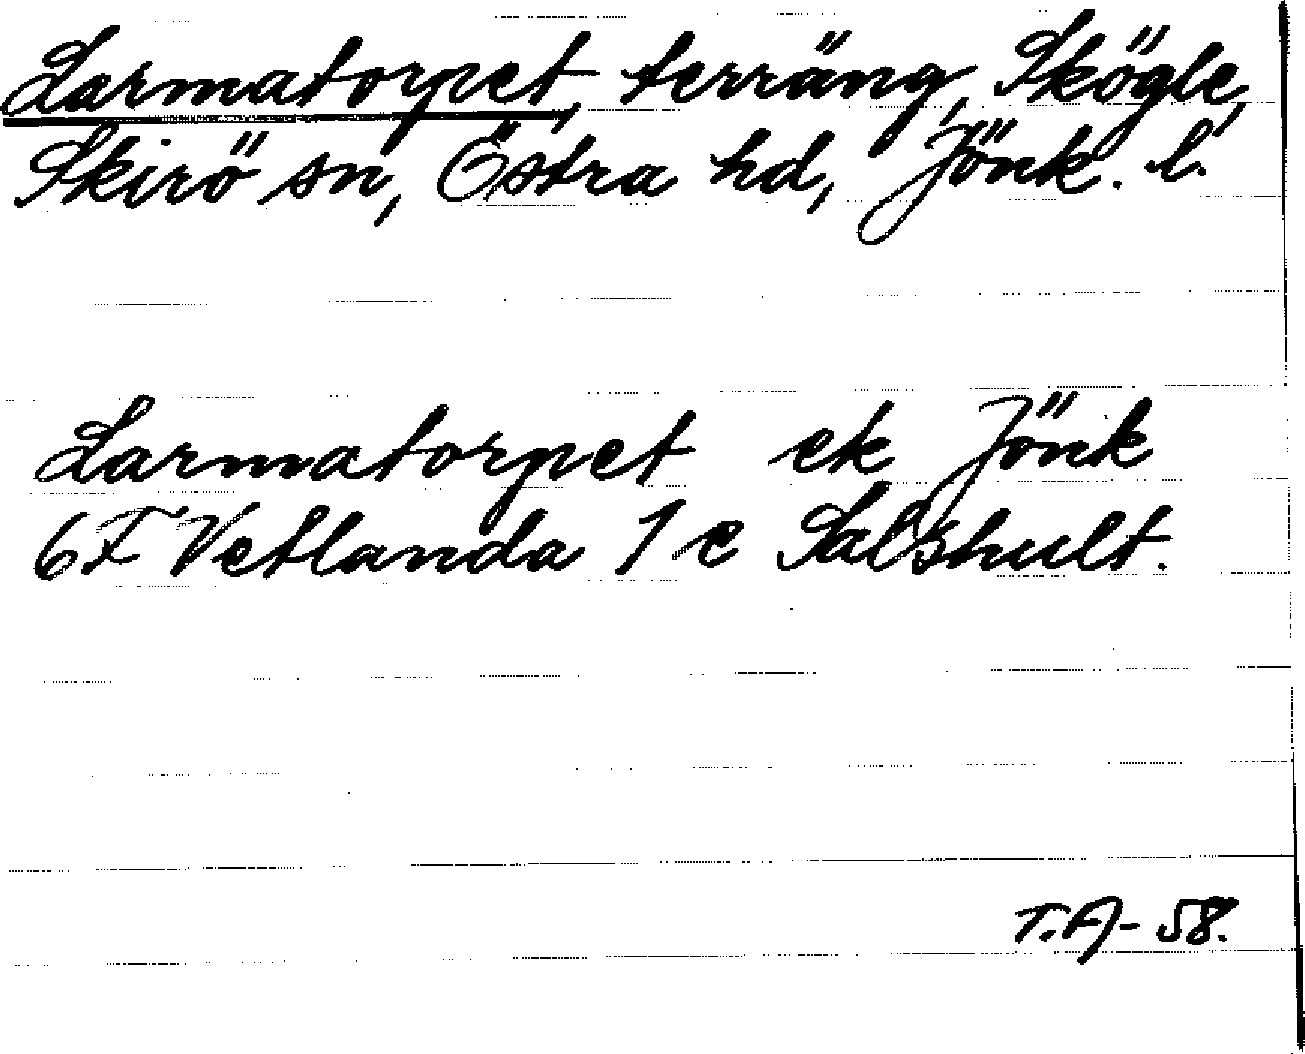 Larmatorpet, terräng, Skögle,
Skirö sn, Östra hd, Jönk. l.
Larmatorpet ek Jönk
6F Vetlanda 1 c Salshult.
T.A-58.